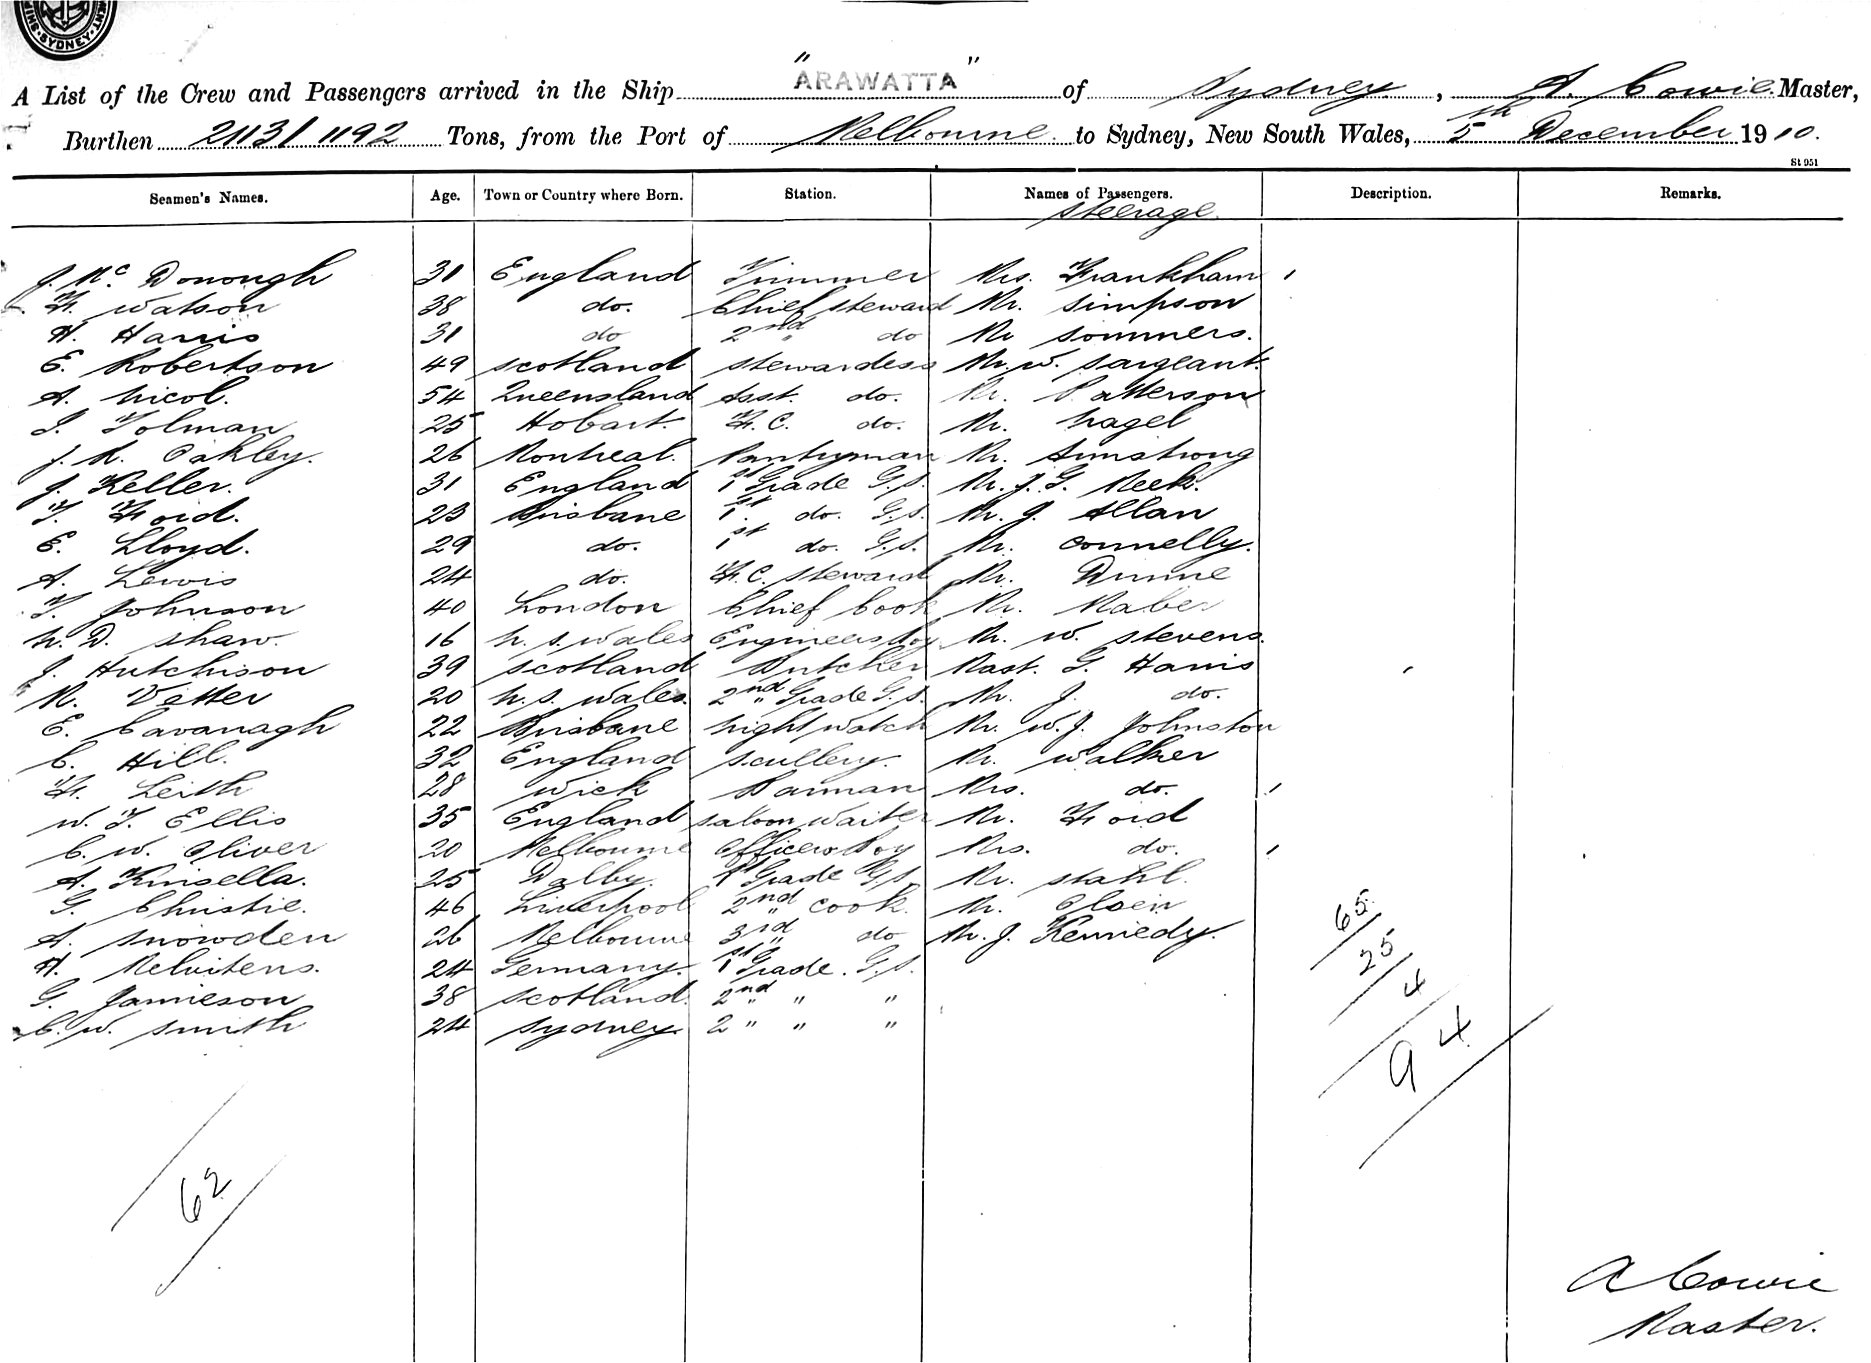 SYDNEY
A List of the Crew and Passengers arrived in the Ship "ARAWATTA" of Sydney, A. Cowie Master,
Burthen 2113/1192 Tons, from the Port of Melbourne to Sydney, New South Wales, 5th December 1910.
St 951
Seamen's Names. Age. Town or Country where Born. Station. Names of Passengers. Description. Remarks.
Steerage
J. McDonough 31 England Trimmer Mrs. Frankham
F. Watson 38 do. Chief Steward Mr. Simpson
H. Harris 31 do 2nd do Mr Sommers.
E. Robertson 49 Scotland Stewardess Mr. W. Sargeant.
A. Nicol. 54 Queensland Asst. do. Mr. Patterson
J. Tolman 25 Hobart. F.C. do. Mr. Nagel
J. R. Oakley. 26 Montreal. Pantryman Mr. Armstrong
J. Keller. 31 England 1st Grade G.S. Mr. J. G. Meek.
T. Ford. 23 Brisbane 1st do. G.S. Mr. J. Allan
E. Lloyd. 29 do. 1st do. G.S. Mr. Connelly.
A. Lewis 24 do. F.C. Steward Mr. Dunne
T. Johnson 40 London Chief Cook Mr. Maber
N. D. Shaw. 16 N. S. Wales Engineers Boy Mr. W. Stevens.
J. Hutchison 39 Scotland Butcher Mast. G. Harris
R. Vetter 20 N. S. Wales. 2nd Grade G.S. Mr. J. do.
E. Cavanagh 22 Brisbane Night Watch Mr. W. J. Johnston
C. Hill. 32 England Scullery. Mr. Walker
F. Leith 28 Wick Barman Mrs. do.
W. T. Ellis 35 England Saloon Waiter Mr. Ford
C. W. Oliver 20 Melbourne Officers Boy Mrs. do.
A. Kinsella. 25 Dalby. 1st Grade G.S. Mr. Stahl.
G. Christie. 46 Liverpool 2nd Cook. Mr. Olsen
A. Snowden 26 Melbourne 3rd do Mr. J. Kennedy.
H. 24 Germany. 1st Grade. G.S.
G. Jamieson 38 Scotland. 2nd " "
C. W. Smith 24 Sydney. 2 " " "
65
25
4
94
62
A Cowie
Master.